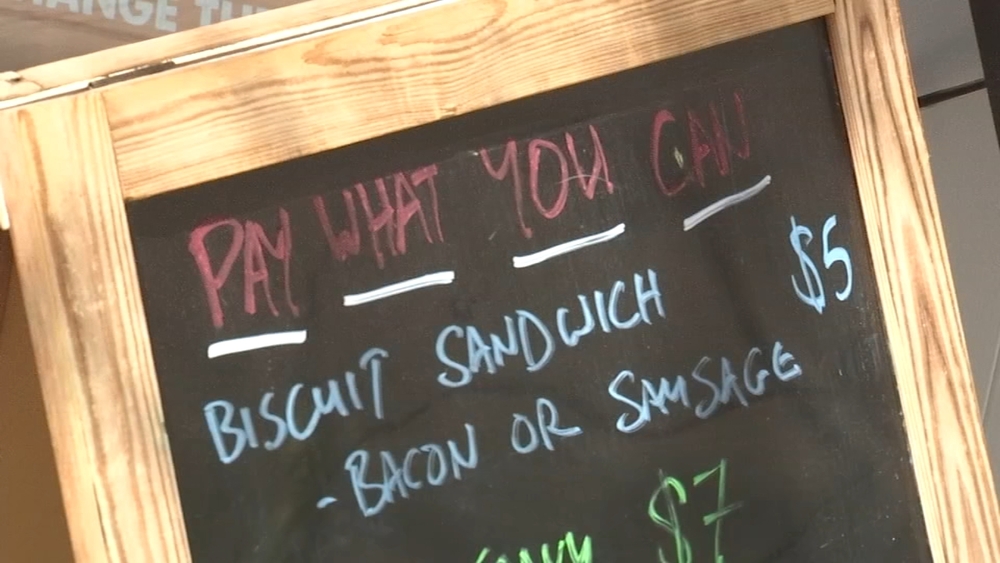 PAY WHAT YOU CAN
BISCUIT SANDWICH $5
- BACON OR SAUSAGE
$7